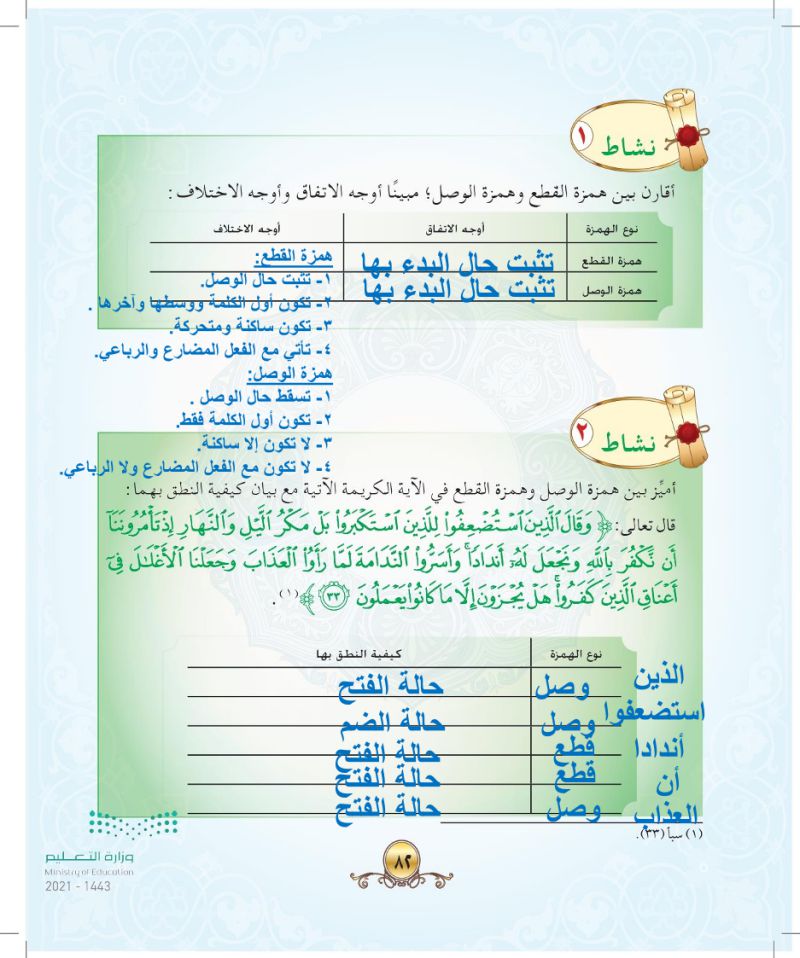 نشاط ١
أقارن بين همزة القطع وهمزة الوصل؛ مبينًا أوجه الاتفاق وأوجه الاختلاف:
نوع الهمزة أوجه الاتفاق أوجه الاختلاف
همزة القطع تثبت حال البدء بها
همزة الوصل تثبت حال البدء بها
همزة القطع:
١- تثبت حال الوصل.
٢- تكون أول الكلمة ووسطها وآخرها .
٣- تكون ساكنة ومتحركة.
٤- تأتي مع الفعل المضارع والرباعي.
همزة الوصل:
١- تسقط حال الوصل .
٢- تكون أول الكلمة فقط.
٣- لا تكون إلا ساكنة.
٤- لا تكون مع الفعل المضارع ولا الرباعي.
نشاط ٢
أميِّز بين همزة الوصل وهمزة القطع في الآية الكريمة الآتية مع بيان كيفية النطق بهما:
قال تعالى: ﴿ وَقَالَ ٱلَّذِينَ ٱسۡتُضۡعِفُواْ لِلَّذِينَ ٱسۡتَكۡبَرُواْ بَلۡ مَكۡرُ ٱلَّيۡلِ وَٱلنَّهَارِ إِذۡ تَأۡمُرُونَنَآ
أَن نَّكۡفُرَ بِٱللَّهِ وَنَجۡعَلَ لَهُۥٓ أَندَادٗاۚ وَأَسَرُّواْ ٱلنَّدَامَةَ لَمَّا رَأَوُاْ ٱلۡعَذَابَۚ وَجَعَلۡنَا ٱلۡأَغۡلَٰلَ فِيٓ
أَعۡنَاقِ ٱلَّذِينَ كَفَرُواْۖ هَلۡ يُجۡزَوۡنَ إِلَّا مَا كَانُواْ يَعۡمَلُونَ ٣٣ ﴾ (١).
نوع الهمزة كيفية النطق بها
الذين وصل حالة الفتح
استضعفوا وصل حالة الضم
أندادا قطع حالة الفتح
أن قطع حالة الفتح
العذاب وصل حالة الفتح
(١) سبأ (٣٣).
وزارة التعليم
Ministry of Education
2021 - 1443
٨٢